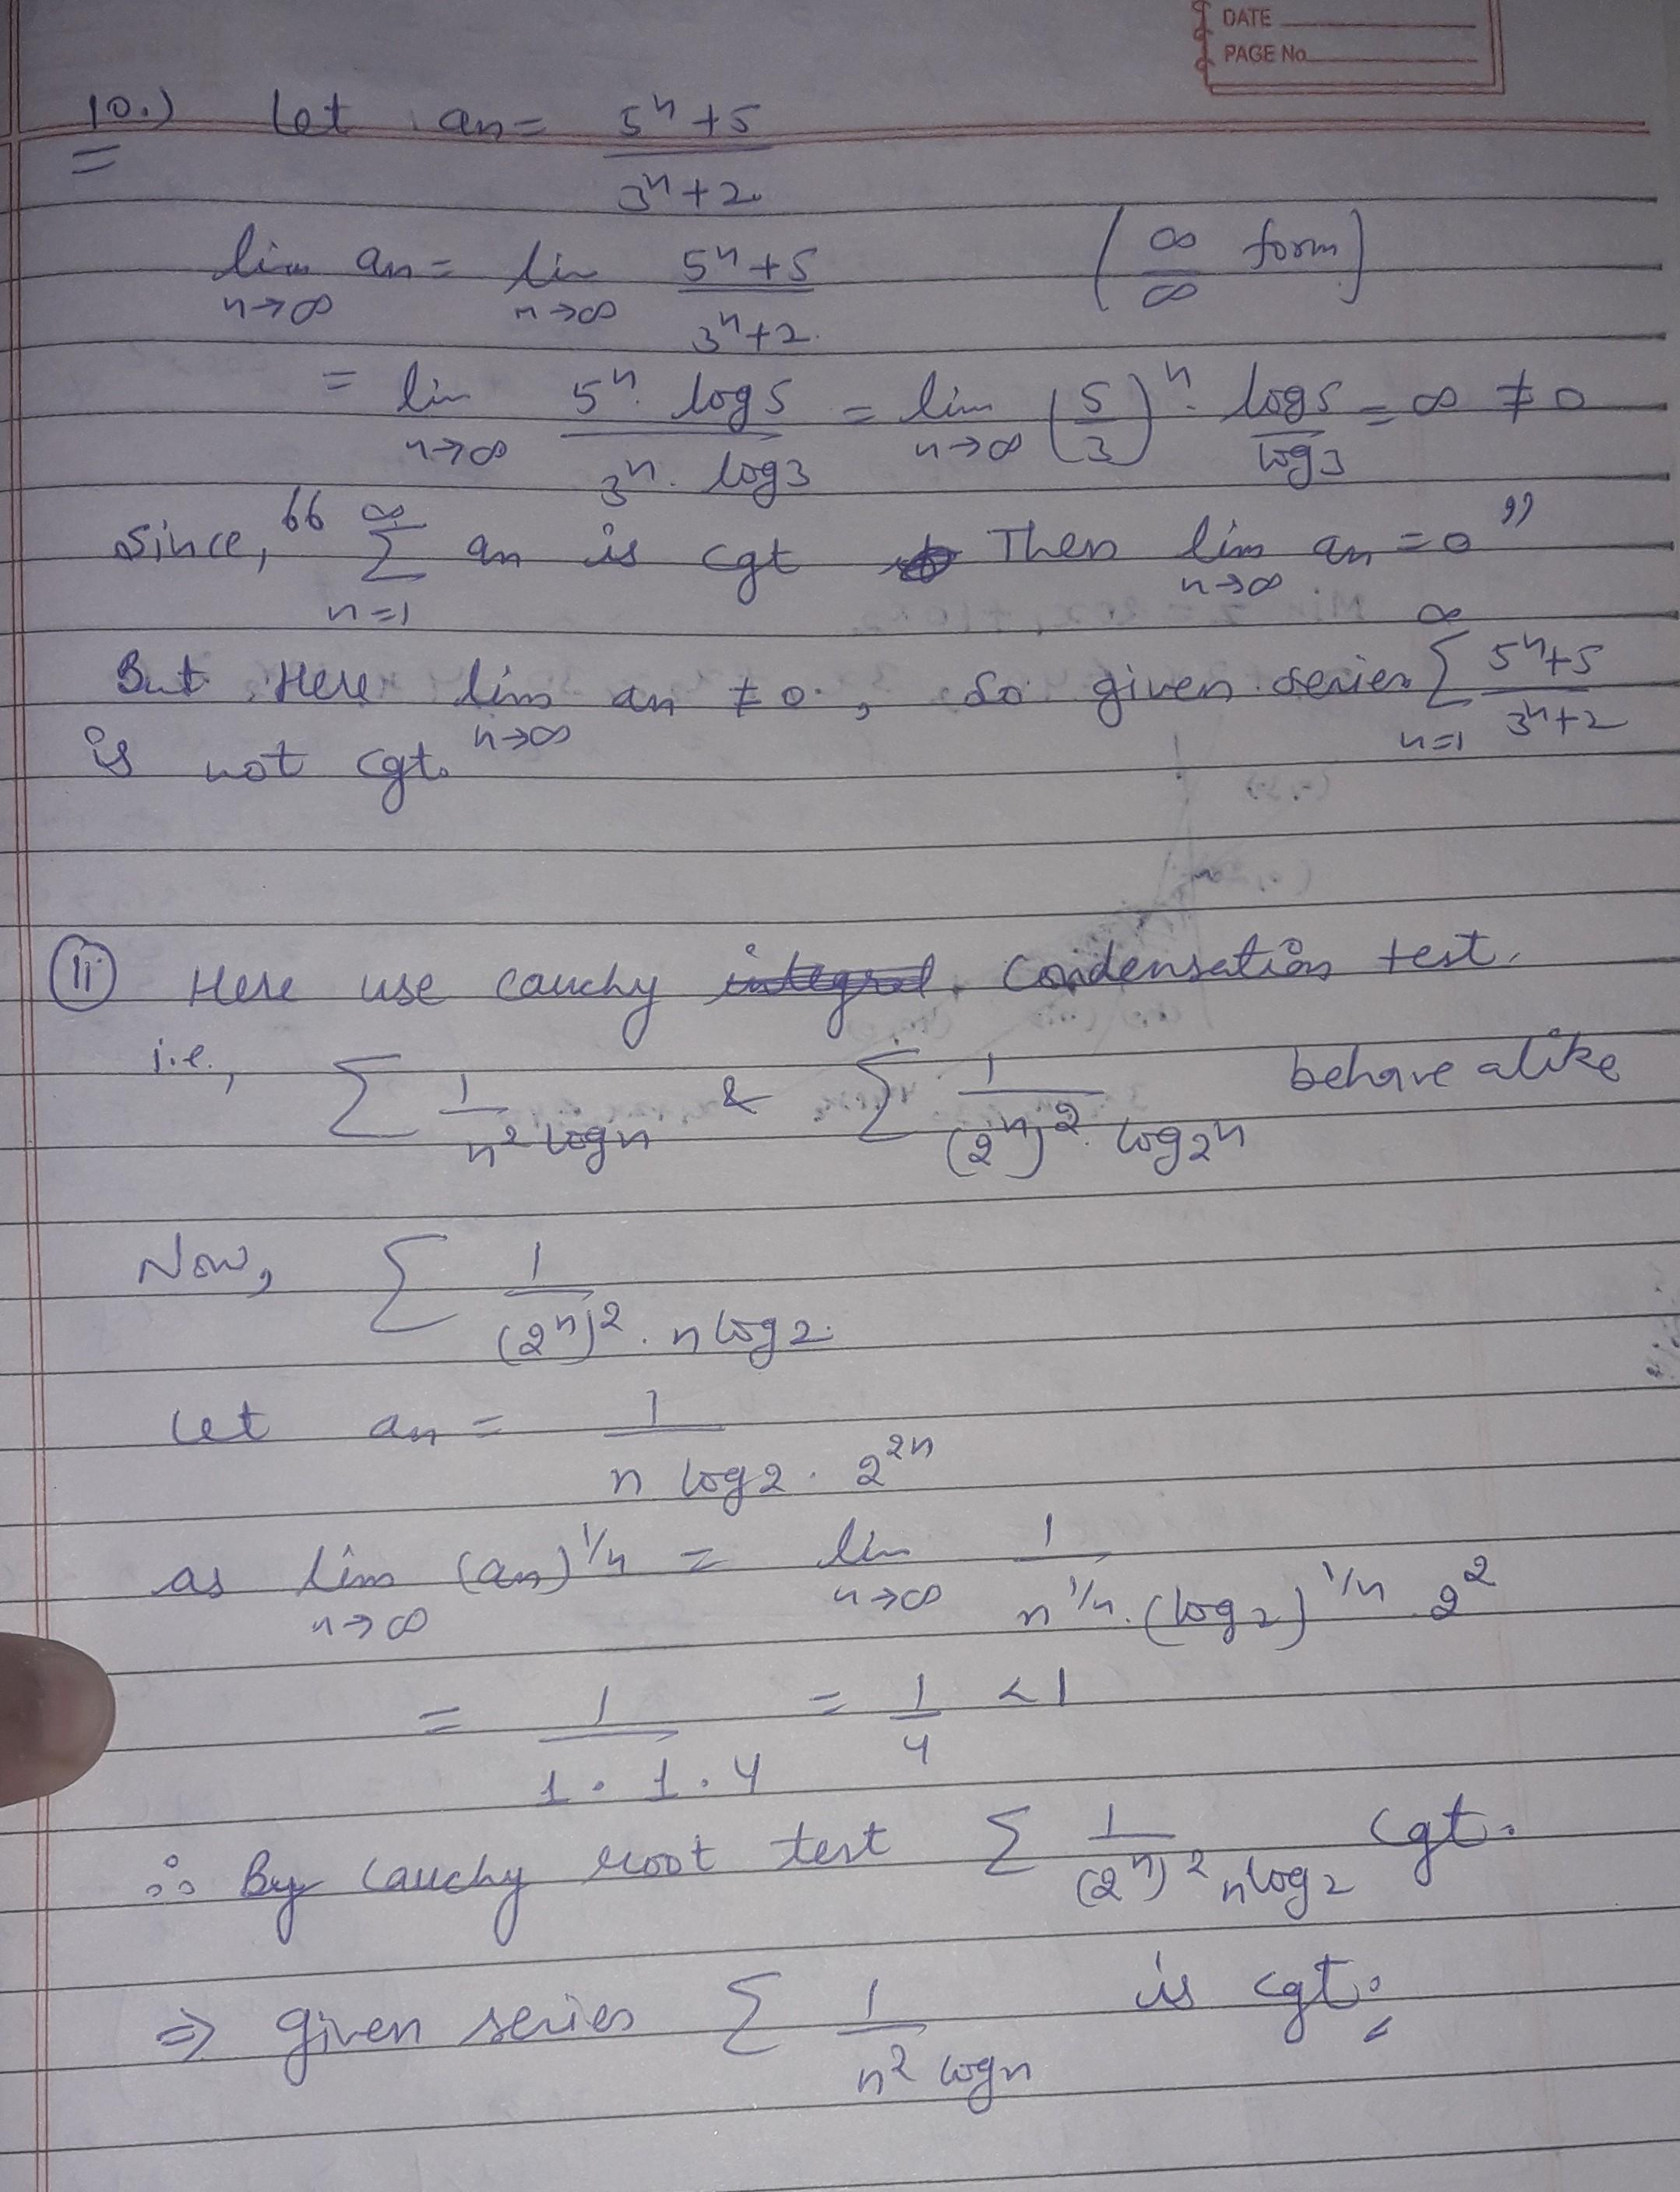 DATE
PAGE No.
10.) Let an = 5^n + 5 / 3^n + 2
lim n→∞ an = lim n→∞ 5^n + 5 / 3^n + 2 (∞/∞ form)
= lim n→∞ 5^n. log5 / 3^n. log3 = lim n→∞ (5/3)^n. log5/log3 = ∞ ≠ 0
Since, "∑ n=1 ∞ an is cgt Then lim n→∞ an = 0"
But Here lim n→∞ an ≠ 0, So given series ∑ n=1 ∞ 5^n+5 / 3^n+2
is not cgt.
(11) Here use cauchy integral Condensation test.
i.e., ∑ 1 / n^2 logn & ∑ 1 / (2^n)^2. log2^n behave alike
Now, ∑ 1 / (2^n)^2 . n log2.
Let an = 1 / n log2 . 2^2n
as lim n→∞ (an)^1/n = lim n→∞ 1 / n^1/n. (log2)^1/n . 2^2
= 1 / 1 . 1 . 4 = 1/4 < 1
∴ By Cauchy root test ∑ 1 / (2^n)^2 nlog2 cgt.
⇒ given series ∑ 1 / n^2 logn is cgt.